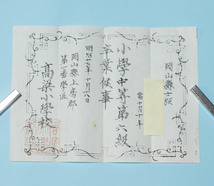 岡山縣士族
小學中等第六級
卒業候事
明治十五年十月八日
岡山縣上房郡
第壹學區
高梁小學校